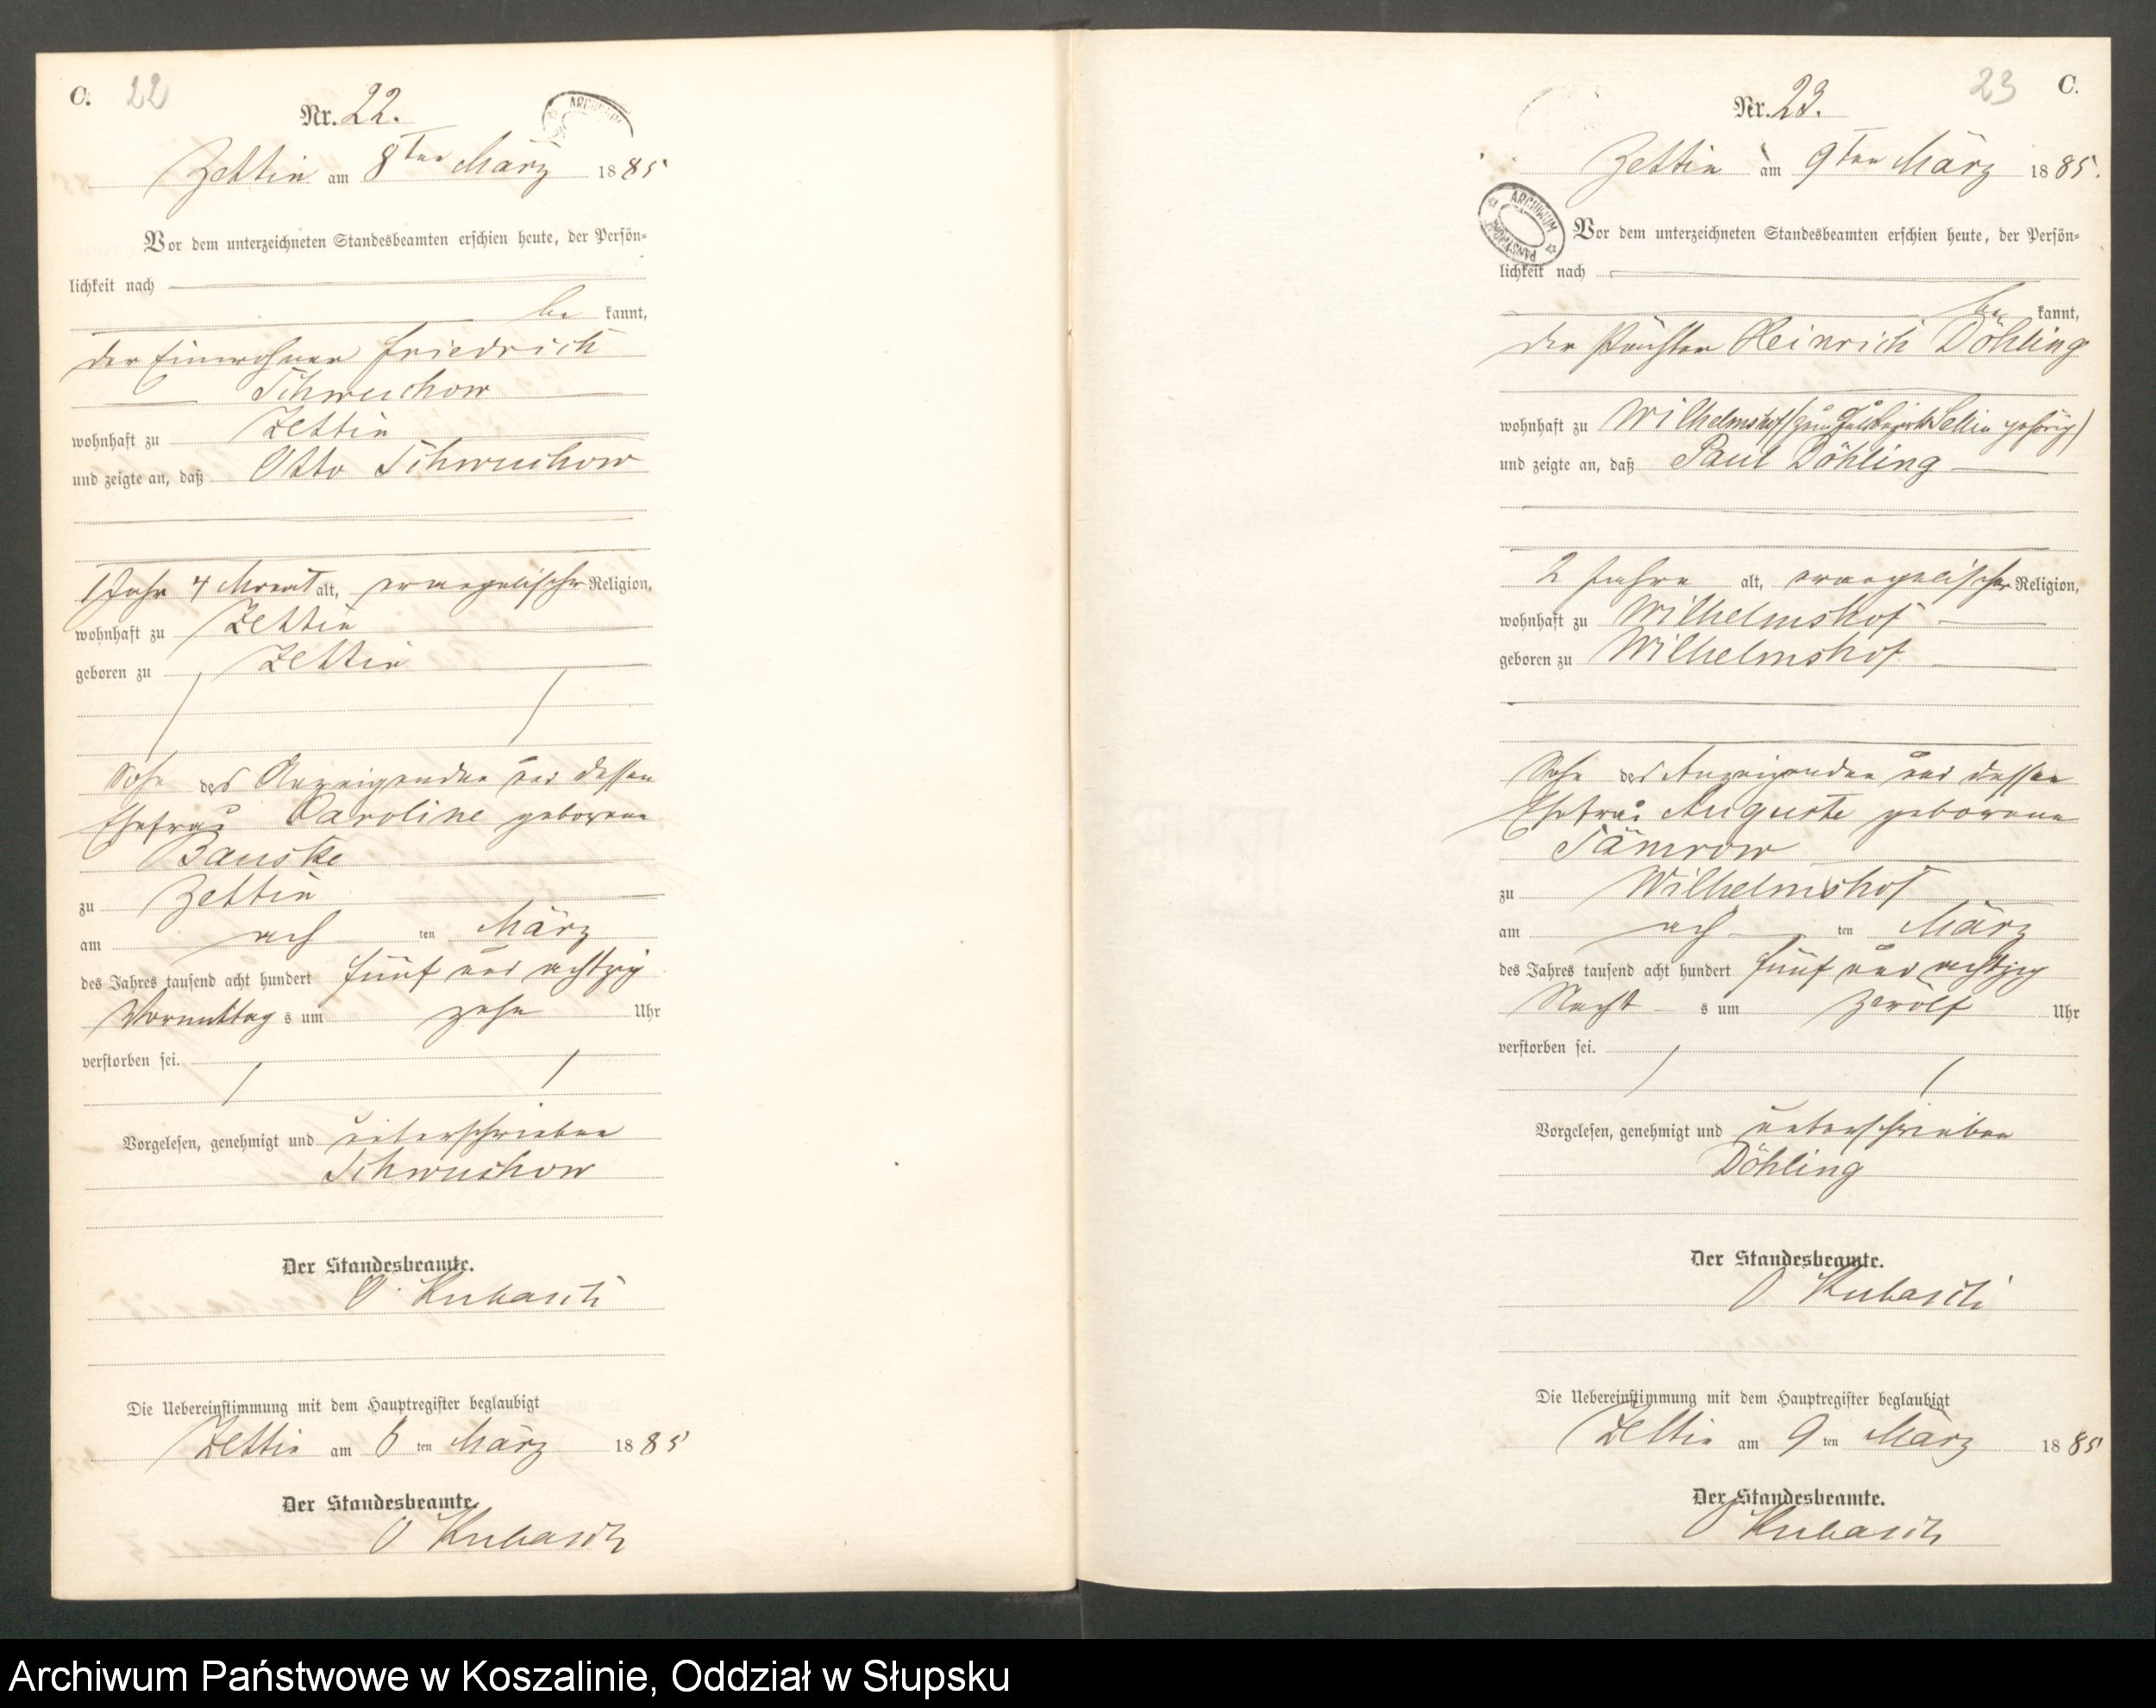 C. 22
Nr. 22.
Zettin am 8ten März 1885
Vor dem unterzeichneten Standesbeamten erschien heute, der Persön=
lichkeit nach
be kannt,
der Einwohner Friedrich
Schwuchow
wohnhaft zu Zettin
und zeigte an, daß Otto Schwuchow
1 Jahr 4 Monat alt, evangelischer Religion,
wohnhaft zu Zettin
geboren zu Zettin
Sohn des Anzeigenden und dessen
Ehefrau Caroline geborene
Bauske
zu Zettin
am ach ten März
des Jahres tausend acht hundert fünf und achtzig
Vormittag s um zehn Uhr
verstorben sei.
Vorgelesen, genehmigt und unterschrieben
Schwuchow
Der Standesbeamte.
O. Kubasch
Die Uebereinstimmung mit dem Hauptregister beglaubigt
Zettin am 8 ten März 1885
Der Standesbeamte.
O Kubasch
23 C.
Nr. 23.
Zettin am 9ten März 1885.
ARCHIWUM
Vor dem unterzeichneten Standesbeamten erschien heute, der Persön=
lichkeit nach
be kannt,
der Pächter Heinrich Döhling
wohnhaft zu Wilhelmshof (zum Gutsbezirk Sellin gehörig)
und zeigte an, daß Paul Döhling
2 Jahre alt, evangelischer Religion,
wohnhaft zu Wilhelmshof
geboren zu Wilhelmshof
Sohn des Anzeigenden und dessen
Ehefrau Auguste geborene
Tämrow
zu Wilhelmshof
am ach ten März
des Jahres tausend acht hundert fünf und achtzig
Nacht s um zwölf Uhr
verstorben sei.
Vorgelesen, genehmigt und unterschrieben
Döhling
Der Standesbeamte.
O Kubasch
Die Uebereinstimmung mit dem Hauptregister beglaubigt
Zettin am 9 ten März 1885
Der Standesbeamte.
O Kubasch
Archiwum Państwowe w Koszalinie, Oddział w Słupsku